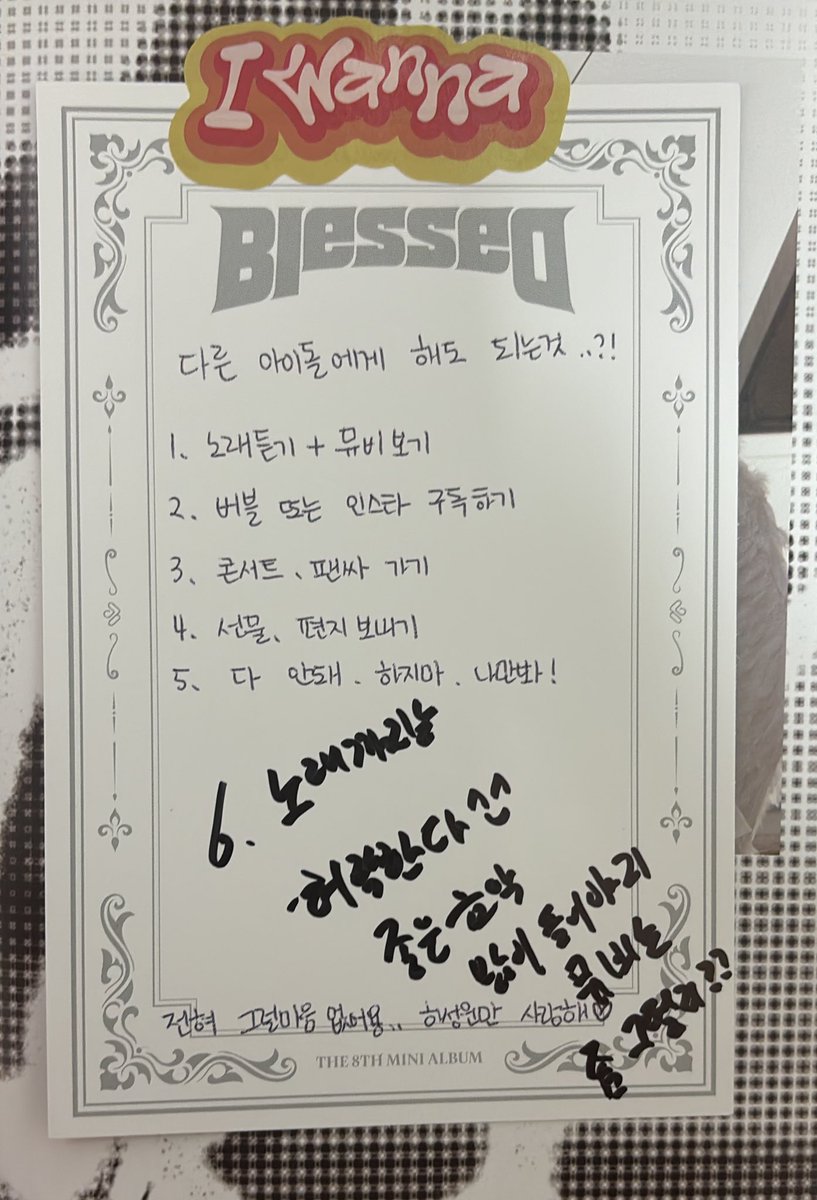 I Wanna
Blessed
다른 아이돌에게 해도 되는것..?!
1. 노래듣기 + 뮤비보기
2. 버블 또는 인스타 구독하기
3. 콘서트、팬싸 가기
4. 선물、편지보내기
5. 다 안돼. 하지마. 나만봐!
6. 노래까지는
허락한다
좋은 음악
많이 들어야지
뮤비는
좀 그렇지??
전혀 그럴마음 없어용.. 하성운만 사랑해♡
THE 8TH MINI ALBUM